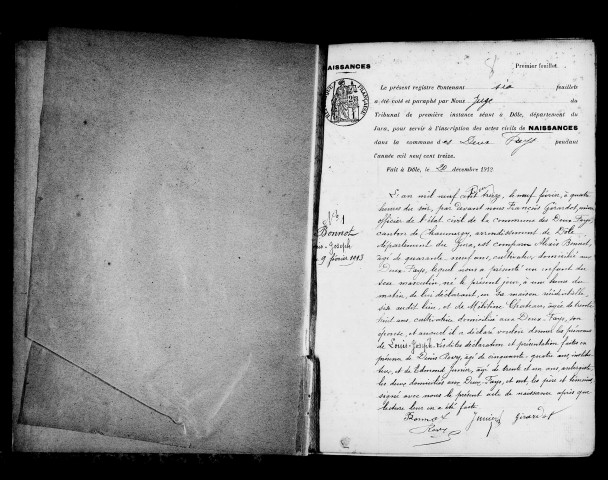 NAISSANCES
Premier feuillet.
Le présent registre contenant six feuillets
a été coté et paraphé par Nous Juge du
Tribunal de première instance séant à Dôle, département du
Jura, pour servir à l'inscription des actes civils de NAISSANCES
dans la commune des Deux Fays pendant
l'année mil neuf cent treize.
Fait à Dôle, le 20 décembre 1912
N° 1
Bonnot
Louis-Joseph
9 février 1913
L'an mil neuf cent treize, le neuf février, à quatre
heures du soir, par devant nous François Girardot, maire,
officier de l'état civil de la commune des Deux-Fays,
canton de Chaumergy, arrondissement de Dôle,
département du Jura, est comparu Alexis Bonnot,
âgé de quarante-neuf ans, cultivateur, domicilié aux
Deux-Fays, lequel nous a présenté un enfant du
sexe masculin, né le présent jour, à une heure du
matin, de lui déclarant, en sa maison
sise audit lieu, et de Chateau, âgée de trente
huit ans, cultivatrice domiciliée aux Deux-Fays, son
épouse, et auquel il a déclaré vouloir donner les prénoms
de Louis-Joseph. Lesdites déclaration et présentation faites en
présence de Denis Revy, âgé de cinquante-quatre ans,
et de Edmond Junier, âgé de trente et un ans,
les deux domiciliés aux Deux-Fays, et ont, les père et témoins,
signé avec nous le présent acte de naissance après que
lecture leur en a été faite.
Bonnot Junier Girardot
Revy